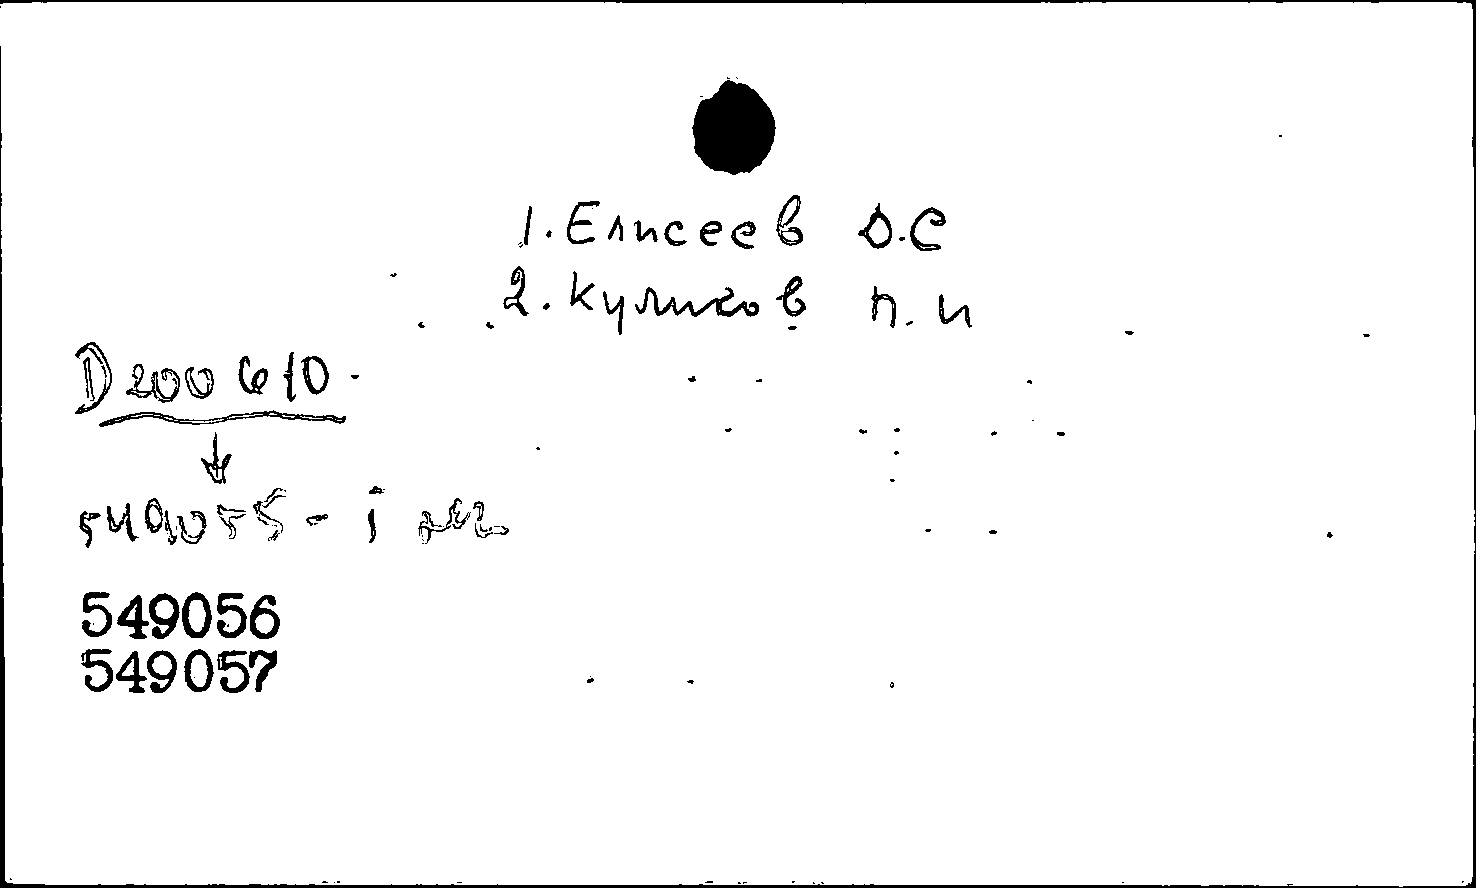 1. Елисеев Д.С
2. Куликов П. И
D200610
549055 -
549056
549057